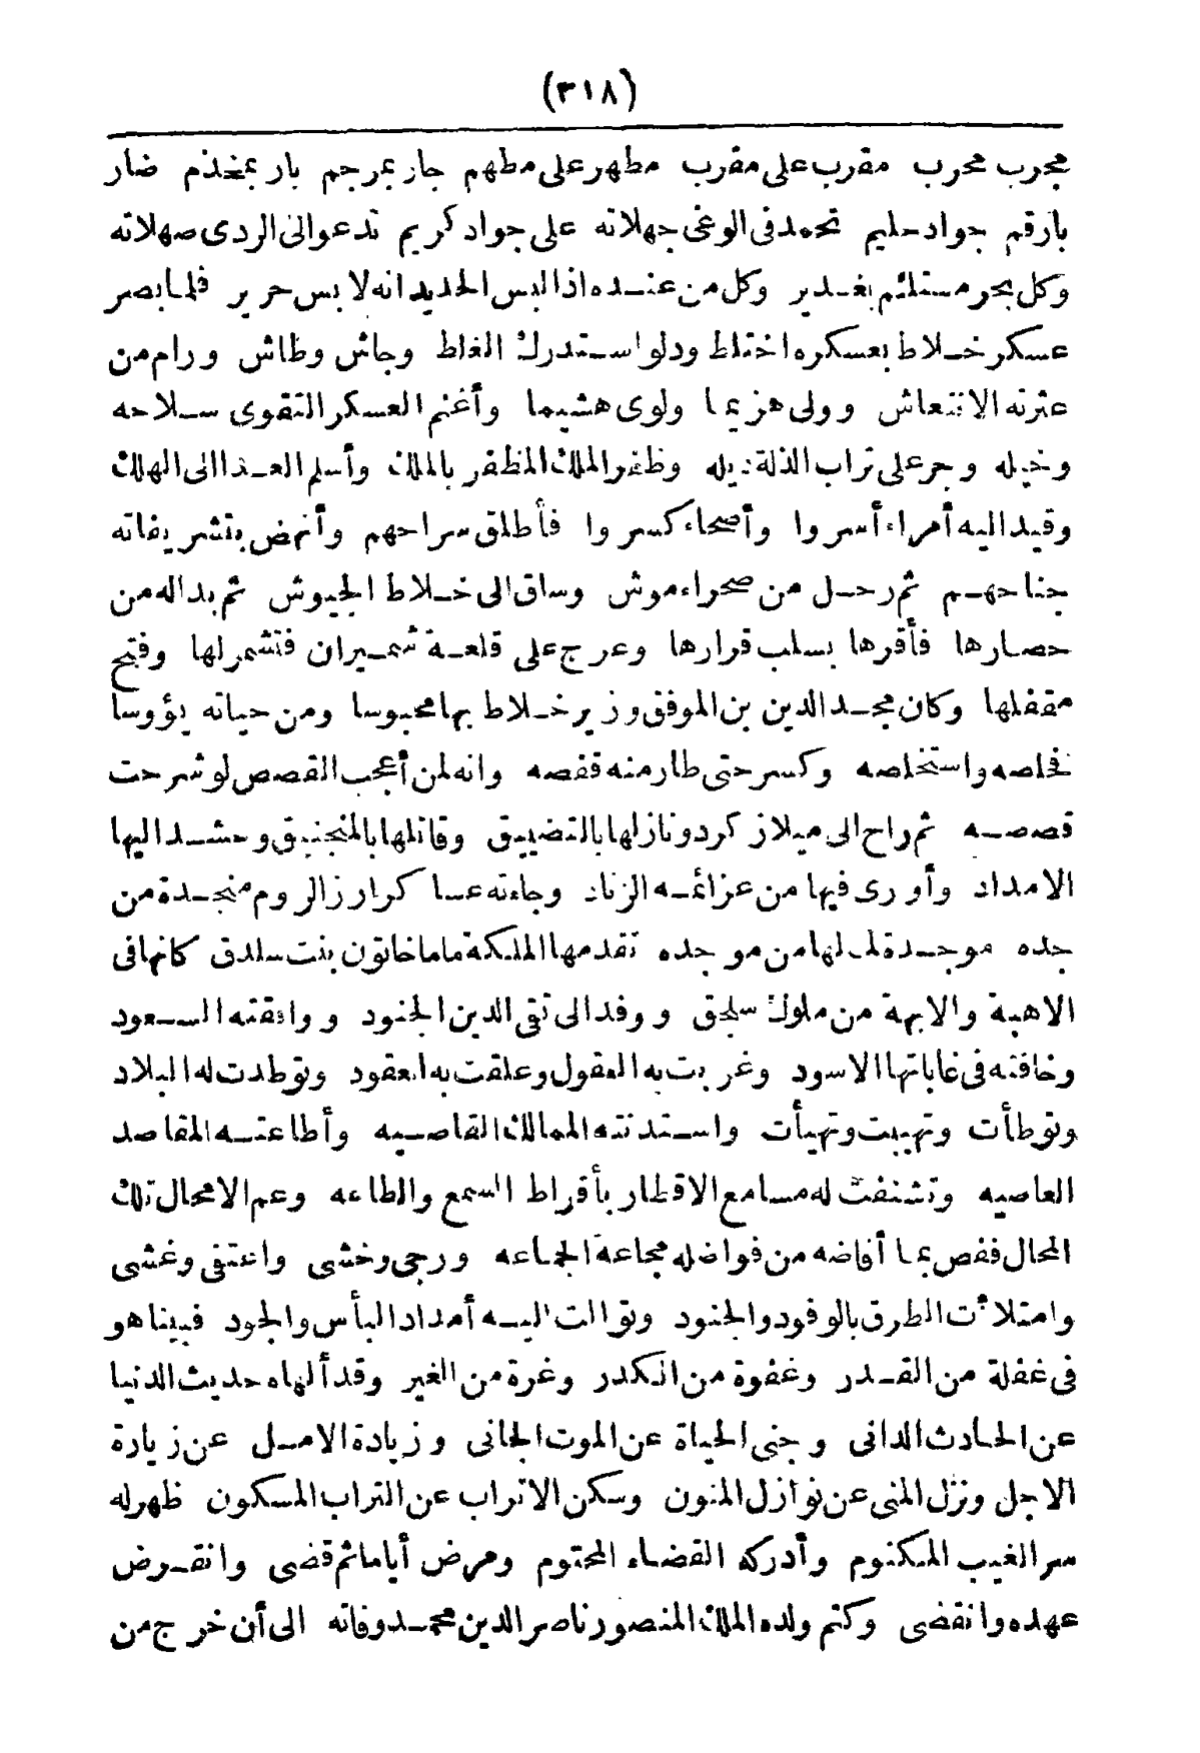 (٣١٨)
مجرب محرب مقرب على مقرب مطهر على مطهم جار بمرجم بار بمخذم ضار
بارقم جواد حليم تحمد فى الوغى جهلاته على جواد كريم تدعو الى الردى صهلاته
وكل بحر مستلئم بغدير وكل من عنده اذا لبس الحديد انه لابس حرير فلما بصر
عسكر خلاط بعسكره اختلط ودلو استدرك الغلط وجاش وطاش ورام من
عثرته الانتعاش وولى هزيما ولوى هشيما وأغنم العسكر التقوى سلاحه
وخيله وجر على تراب الذلة ذيله وظفر الملك المظفر بالملك وأسلم العدا الى الهلك
وقيد اليه أمراء أسروا وأصحاء كسروا فأطلق سراحهم وأنهض بتشريفاته
جناحهم ثم رحل من صحراء موش وساق الى خلاط الجيوش ثم بدا له من
حصارها فأقرها بسلب قرارها وعرج على قلعة شميران فتشمر لها وفتح
مقفلها وكان مجد الدين بن الموفق وزير خلاط بها محبوسا ومن حياته يؤوسا
فخلصه واستخلصه وكسر حتى طار منه قفصه وانه لمن أعجب القصص لو شرحت
قصصه ثم راح الى ميلاز كرد ونازلها بالتضييق وقاتلها بالمنجنيق وحشد اليها
الامداد وأورى فيها من عزائمه الزناد وجاءته عساكر ارزالروم منجدة من
جده موجدة لما لها من موجده تقدمها الملكة ماما خاتون بنت سلدق كانها فى
الاهبة والابهة من ملوك سلجق ووفد الى تقى الدين الجنود ووافقته السعود
وخافته فى غاباتها الاسود وغربت به العقول وعلقت به العقود وتوطدت له البلاد
وتوطأت وتهيبت وتهيأت واستدنته الممالك القاصيه وأطاعته المقاصد
العاصيه وتشنفت له مسامع الاقطار بأقراط السمع والطاعه وعم الامحال تلك
المحال ففص بما أفاضه من فواضله مجاعة الجماعه ورجى وخشى واعتفى وغشى
وامتلأت الطرق بالوفود والجنود وتوالت اليه أمداد البأس والجود فبينا هو
فى غفلة من القدر وغفوة من الكدر وغرة من الغير وقد ألهاه حديث الدنيا
عن الحادث الدانى وجنى الحياة عن الموت الجانى وزيادة الامل عن زيارة
الاجل ونزل المنى عن نوازل المنون وسكن الاتراب عن التراب المسكون ظهر له
سر الغيب المكتوم وأدركه القضاء المحتوم ومرض أياما ثم قضى وانقرض
عهده وانقضى وكتم ولده الملك المنصور ناصر الدين محمد وفاته الى أن خرج من